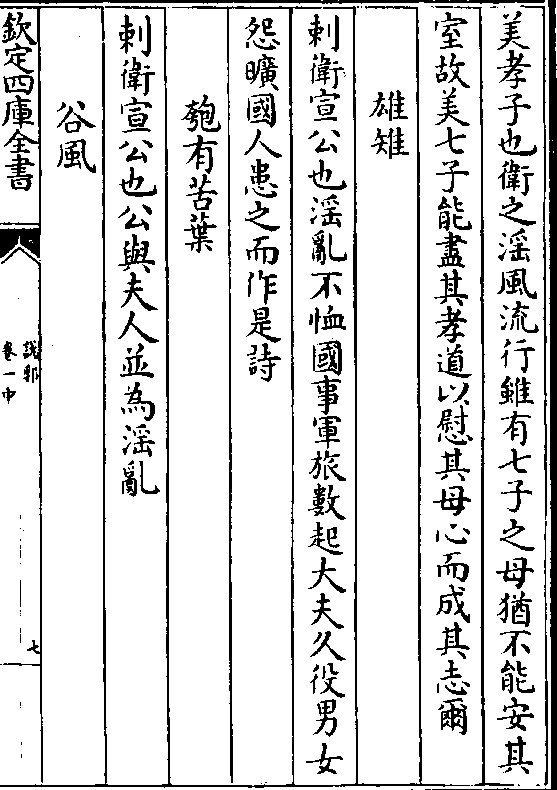 美孝子也衛之淫風流行雖有七子之母猶不能安其
室故美七子能盡其孝道以慰其母心而成其志爾
雄雉
刺衛宣公也淫亂不恤國事軍旅數起大夫久役男女
怨曠國人患之而作是詩
匏有苦葉
刺衛宣公也公與夫人並為淫亂
谷風
欽定四庫全書
說郛
卷一中
七